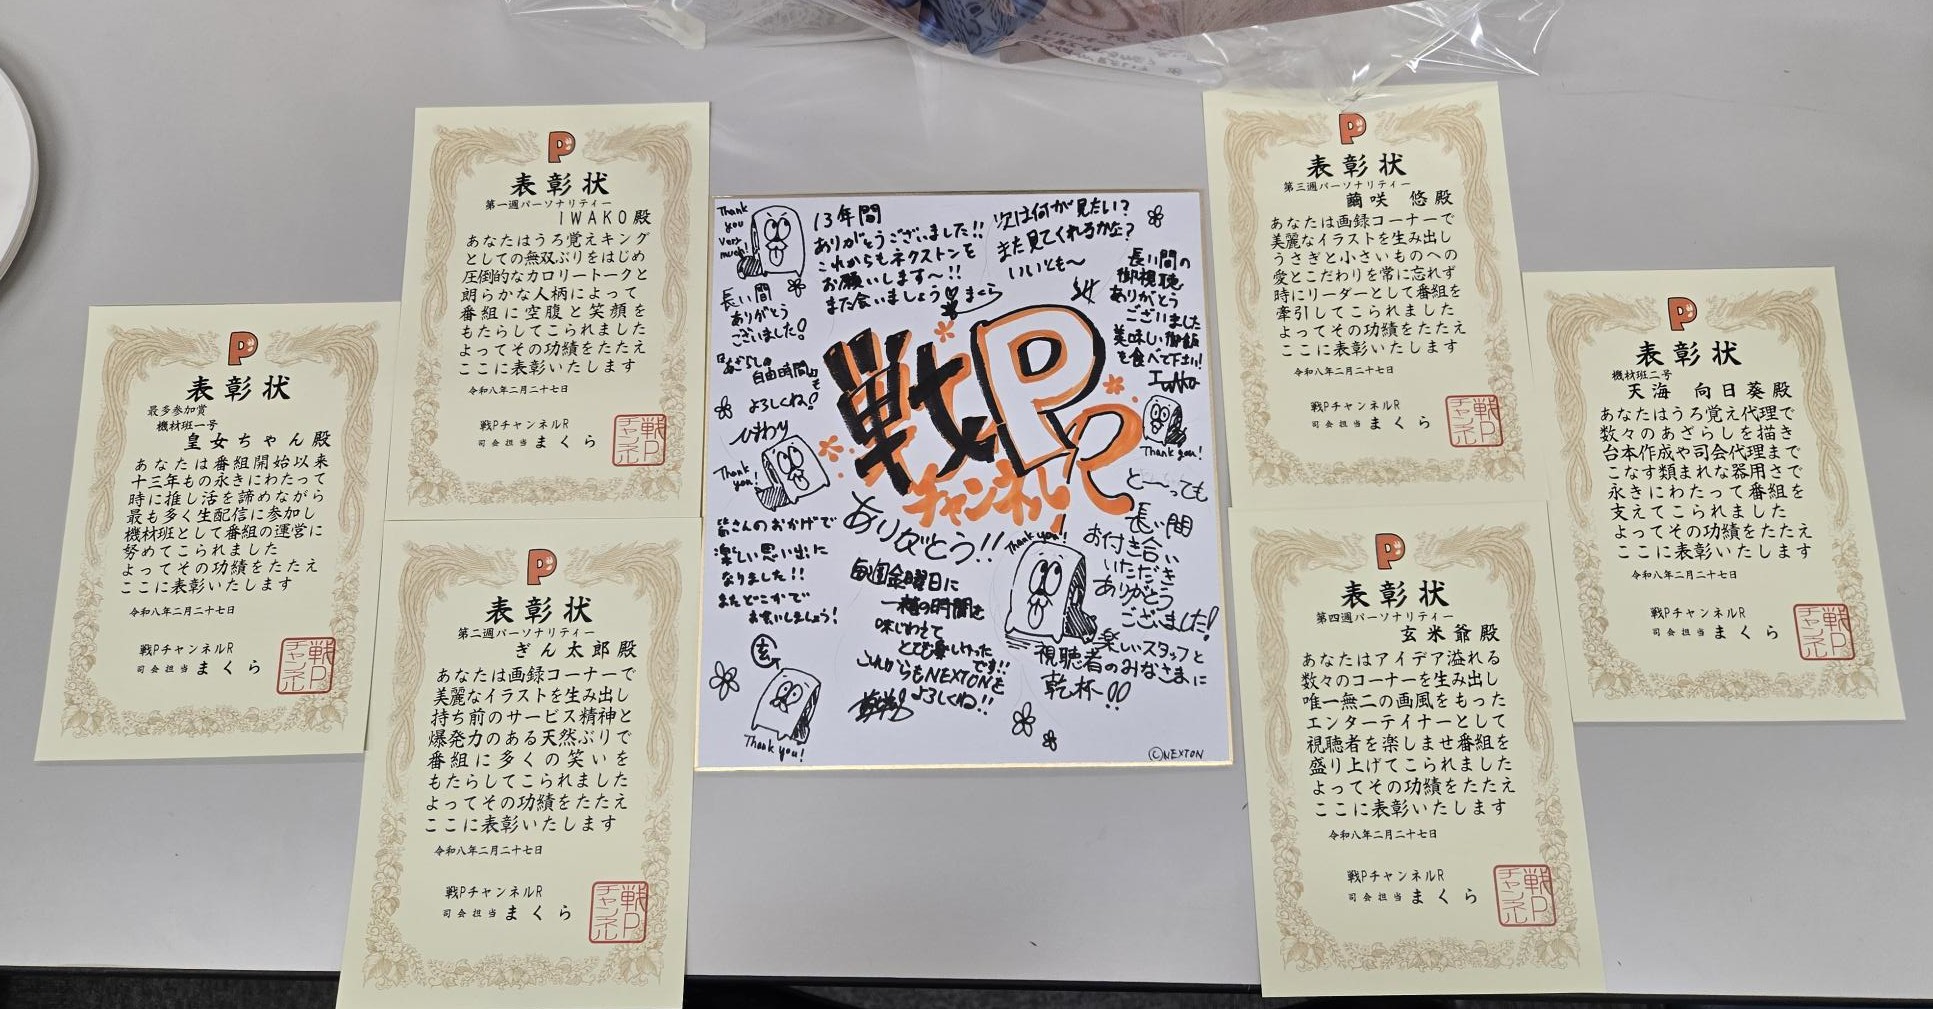 P
表彰状
最多参加賞
機材班一号
皇女ちゃん殿
あなたは番組開始以来
十三年もの永きにわたって
時に推し活を諦めながら
最も多く生配信に参加し
機材班として番組の運営に
努めてこられました
よってその功績をたたえ
ここに表彰いたします
令和八年二月二十七日
戦PチャンネルR
司会担当 まくら
戦P
チャンネル
P
表彰状
第一週パーソナリティー
IWAKO殿
あなたはうろ覚えキング
としての無双ぶりをはじめ
圧倒的なカロリートークと
朗らかな人柄によって
番組に空腹と笑顔を
もたらしてこられました
よってその功績をたたえ
ここに表彰いたします
令和八年二月二十七日
戦PチャンネルR
司会担当 まくら
戦P
チャンネル
P
表彰状
第二週パーソナリティー
ぎん太郎殿
あなたは画録コーナーで
美麗なイラストを生み出し
持ち前のサービス精神と
爆発力のある天然ぶりで
番組に多くの笑いを
もたらしてこられました
よってその功績をたたえ
ここに表彰いたします
令和八年二月二十七日
戦PチャンネルR
司会担当 まくら
戦P
チャンネル
Thank
you
very
much!
13年間
ありがとうございました!!
これからもネクストンを
お願いします〜!!
また会いましょう♡まくら
次は何が見たい?
また見てくれるかな?
いいとも〜
長い間の
御視聴
ありがとう
ございました
美味しい御飯
を食べて下さい!
Iwako
長い間
ありがとう
ございました!
『あざらしの
自由時間』も
よろしくね!
ひまわり
Thank
you!
戦P
チャンネルR
ありがとう!!
Thank you!
皆さんのおかげで
楽しい思い出に
なりました!!
またどこかで
お会いしましょう!
玄
Thank you!
毎週金曜日に
一種の時間を
味じわえて
とても楽しかった
です!!
これからもNEXTONを
よろしくね!!
Thank you!
と〜っても
長い間
お付き合い
いただき
ありがとう
ございました!
楽しいスタッフと
視聴者のみなさまに
乾杯!!
©NEXTON
P
表彰状
第三週パーソナリティー
繭咲 悠殿
あなたは画録コーナーで
美麗なイラストを生み出し
うさぎと小さいものへの
愛とこだわりを常に忘れず
時にリーダーとして番組を
牽引してこられました
よってその功績をたたえ
ここに表彰いたします
令和八年二月二十七日
戦PチャンネルR
司会担当 まくら
戦P
チャンネル
P
表彰状
第四週パーソナリティー
玄米爺殿
あなたはアイデア溢れる
数々のコーナーを生み出し
唯一無二の画風をもった
エンターテイナーとして
視聴者を楽しませ番組を
盛り上げてこられました
よってその功績をたたえ
ここに表彰いたします
令和八年二月二十七日
戦PチャンネルR
司会担当 まくら
戦P
チャンネル
P
表彰状
機材班二号
天海 向日葵殿
あなたはうろ覚え代理で
数々のあざらしを描き
台本作成や司会代理まで
こなす類まれな器用さで
永きにわたって番組を
支えてこられました
よってその功績をたたえ
ここに表彰いたします
令和八年二月二十七日
戦PチャンネルR
司会担当 まくら
戦P
チャンネル